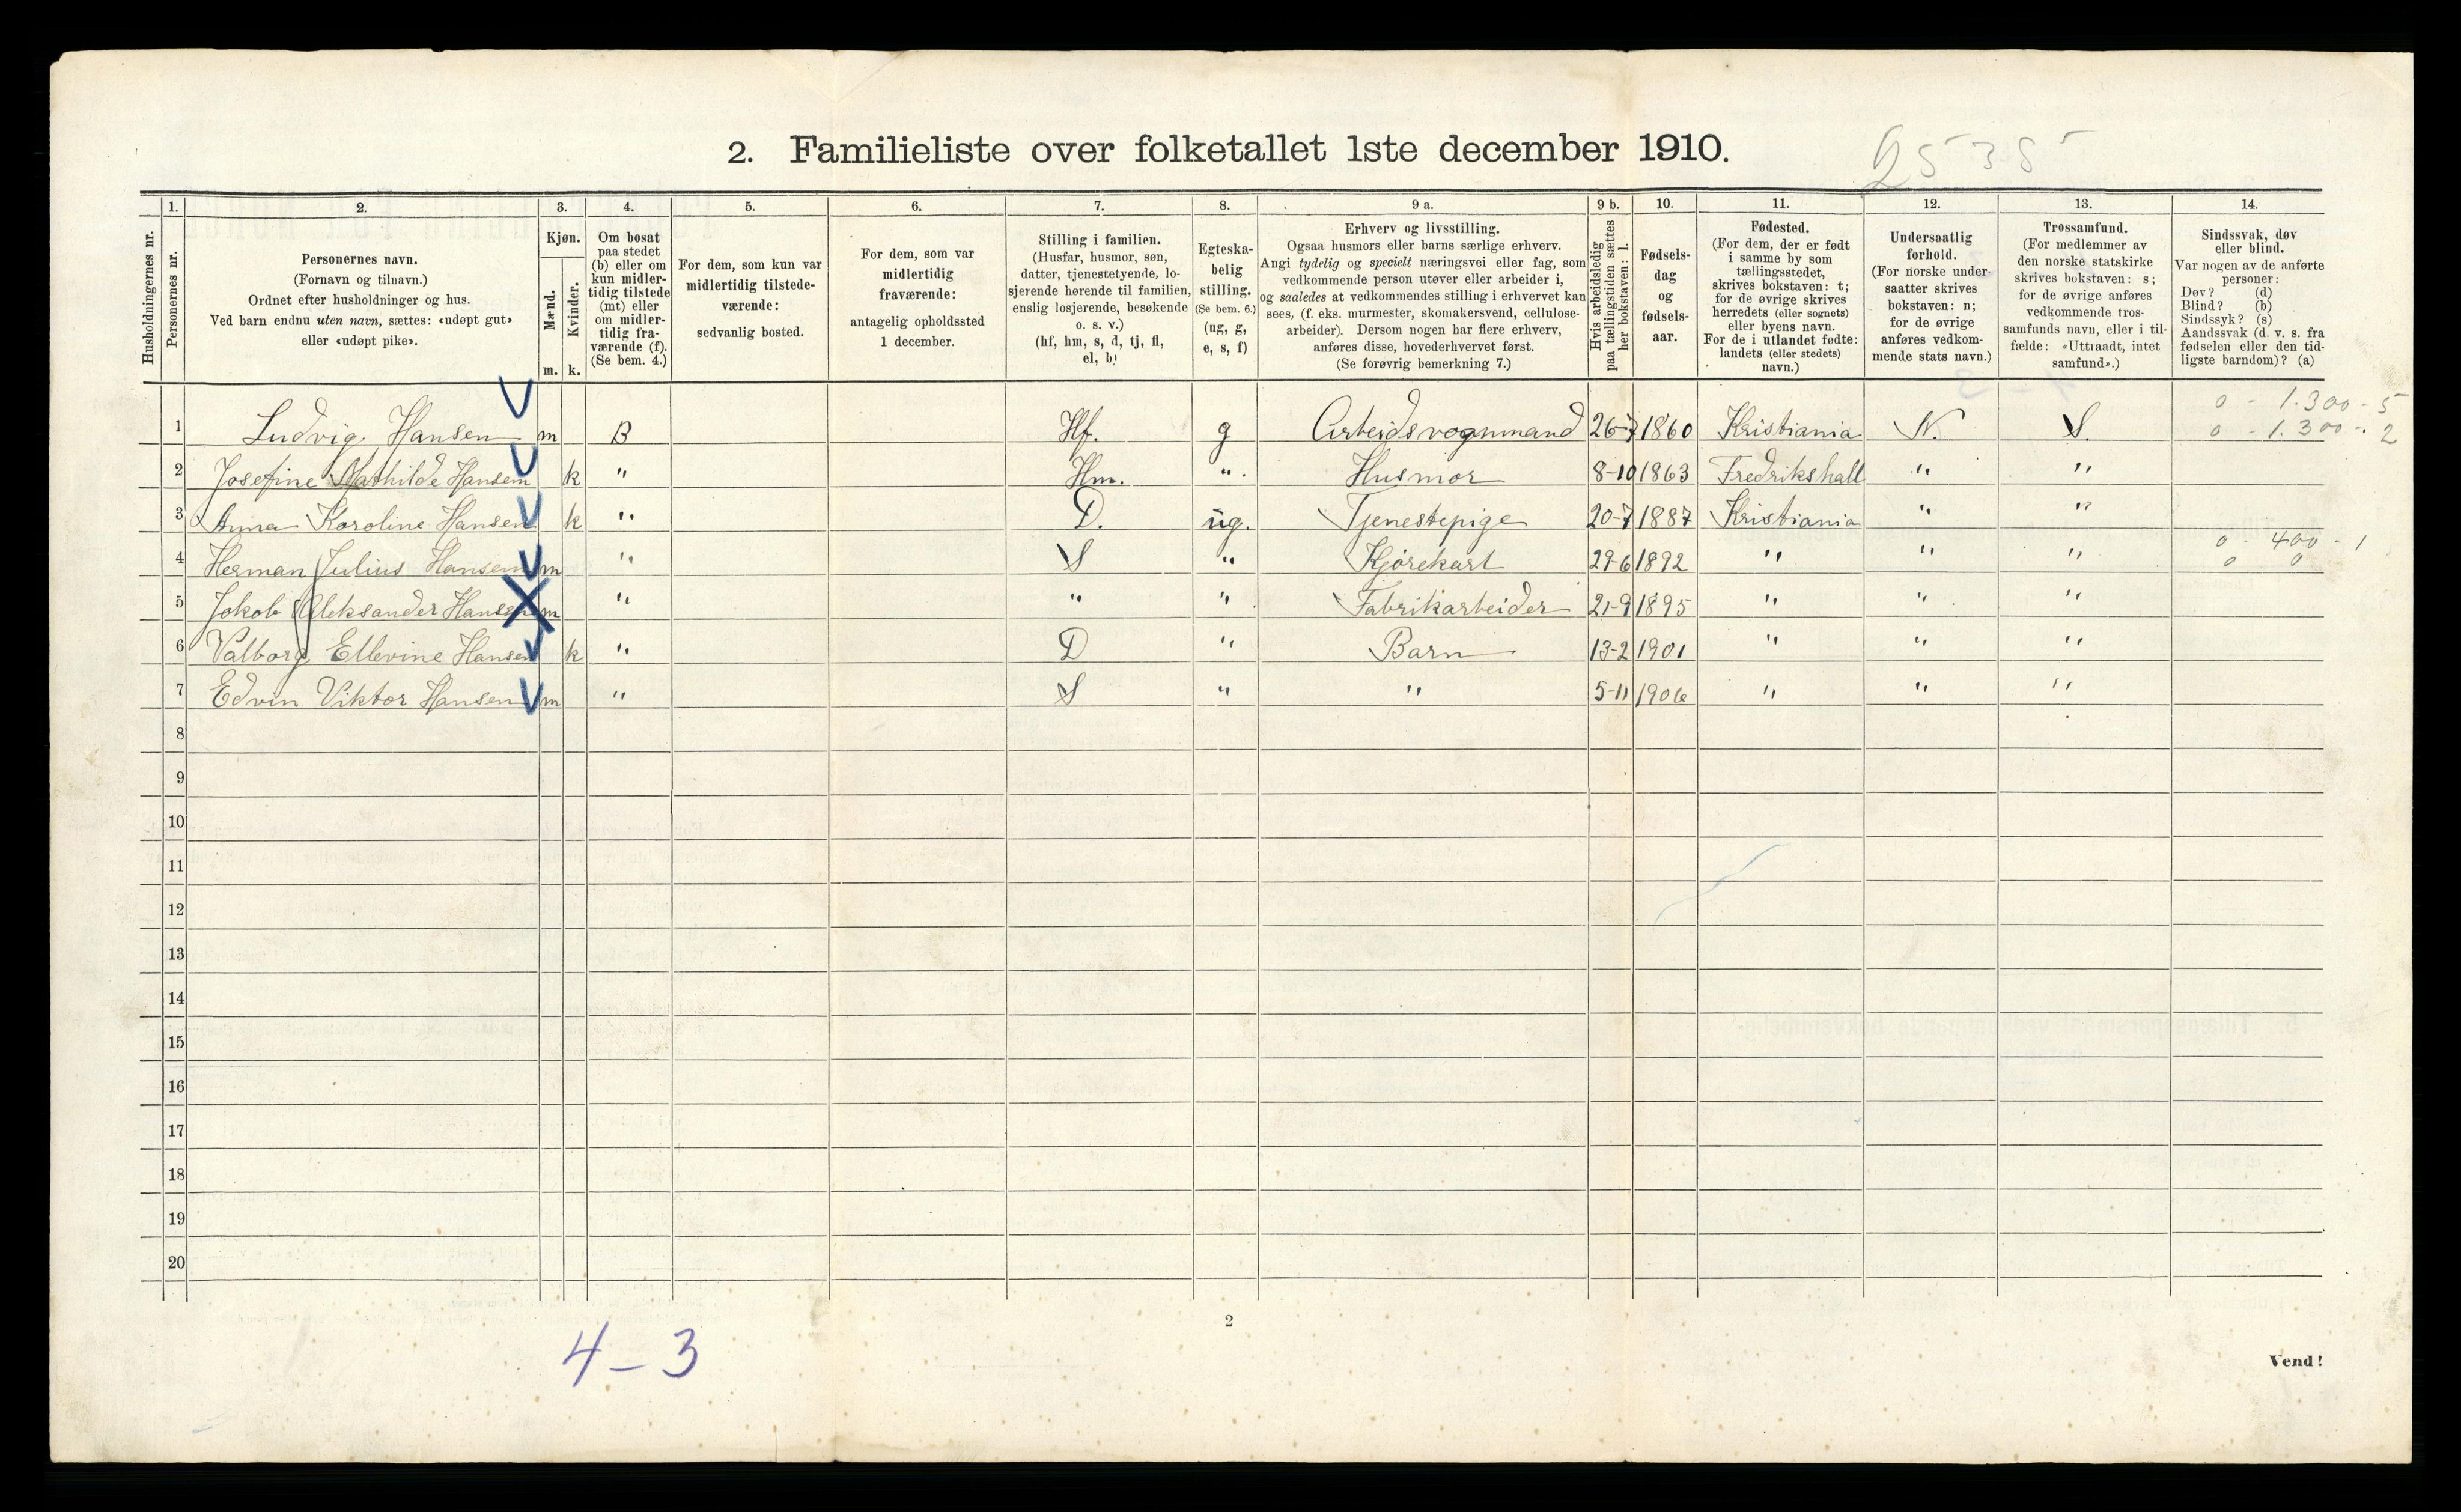 2. Familieliste over folketallet 1ste december 1910.
25385
Husholdningernes nr.
1. Personernes nr.
2. Personernes navn.
(Fornavn og tilnavn.)
Ordnet efter husholdninger og hus.
Ved barn endnu uten navn, sættes: «udøpt gut»
eller «udøpt pike».
3. Kjøn.
Mænd. m.
Kvinder. k.
4. Om bosat
paa stedet
(b) eller om
kun midler-
tidig tilstede
(mt) eller
om midler-
tidig fra-
værende (f).
(Se bem. 4.)
5. For dem, som kun var
midlertidig tilstede-
værende:
sedvanlig bosted.
6. For dem, som var
midlertidig
fraværende:
antagelig opholdssted
1 december.
7. Stilling i familien.
(Husfar, husmor, søn,
datter, tjenestetyende, lo-
sjerende hørende til familien,
enslig losjerende, besøkende
o. s. v.)
(hf, hm, s, d, tj, fl,
el, b)
8. Egteska-
belig
stilling.
(Se bem. 6.)
(ug, g,
e, s, f)
9 a. Erhverv og livsstilling.
Ogsaa husmors eller barns særlige erhverv.
Angi tydelig og specielt næringsvei eller fag, som
vedkommende person utøver eller arbeider i,
og saaledes at vedkommendes stilling i erhvervet kan
sees, (f. eks. murmester, skomakersvend, cellulose-
arbeider). Dersom nogen har flere erhverv,
anføres disse, hovederhvervet først.
(Se forøvrig bemerkning 7.)
9 b. Hvis arbeidsledig
paa tællingstiden sættes
her bokstaven: l.
10. Fødsels-
dag
og
fødsels-
aar.
11. Fødested.
(For dem, der er født
i samme by som
tællingsstedet,
skrives bokstaven: t;
for de øvrige skrives
herredets (eller sognets)
eller byens navn.
For de i utlandet fødte:
landets (eller stedets)
navn.)
12. Undersaatlig
forhold.
(For norske under-
saatter skrives
bokstaven: n;
for de øvrige
anføres vedkom-
mende stats navn.)
13. Trossamfund.
(For medlemmer av
den norske statskirke
skrives bokstaven: s;
for de øvrige anføres
vedkommende tros-
samfunds navn, eller i til-
fælde: «Uttraadt, intet
samfund».)
14. Sindssvak, døv
eller blind.
Var nogen av de anførte
personer:
Døv? (d)
Blind? (b)
Sindssyk? (s)
Aandssvak (d. v. s. fra
fødselen eller den tid-
ligste barndom)? (a)
0 - 1.300 - 5
1 Ludvig Hansen m B Hf. g Arbeidsvognmand 26-7 1860 Kristiania N. S. 0 - 1.300 - 2
2 Josefine Mathilde Hansen k " Hm. " Husmor 8-10 1863 Fredrikshall " "
3 Anna Karoline Hansen k " D. ug. Tjenestepige 20-7 1887 Kristiania " "
0 - 400 - 1
4 Herman Julius Hansen m " S " Kjørekarl 29-6 1892 " " " 0 0
5 Jakob Aleksander Hansen m " " " Fabrikarbeider 21-9 1895 " " "
6 Valborg Ellevine Hansen k " D " Barn 13-2 1901 " " "
7 Edvin Viktor Hansen m " S " " 5-11 1906 " " "
8
9
10
11
12
13
14
15
16
17
18
19
20
2
4-3
Vend!